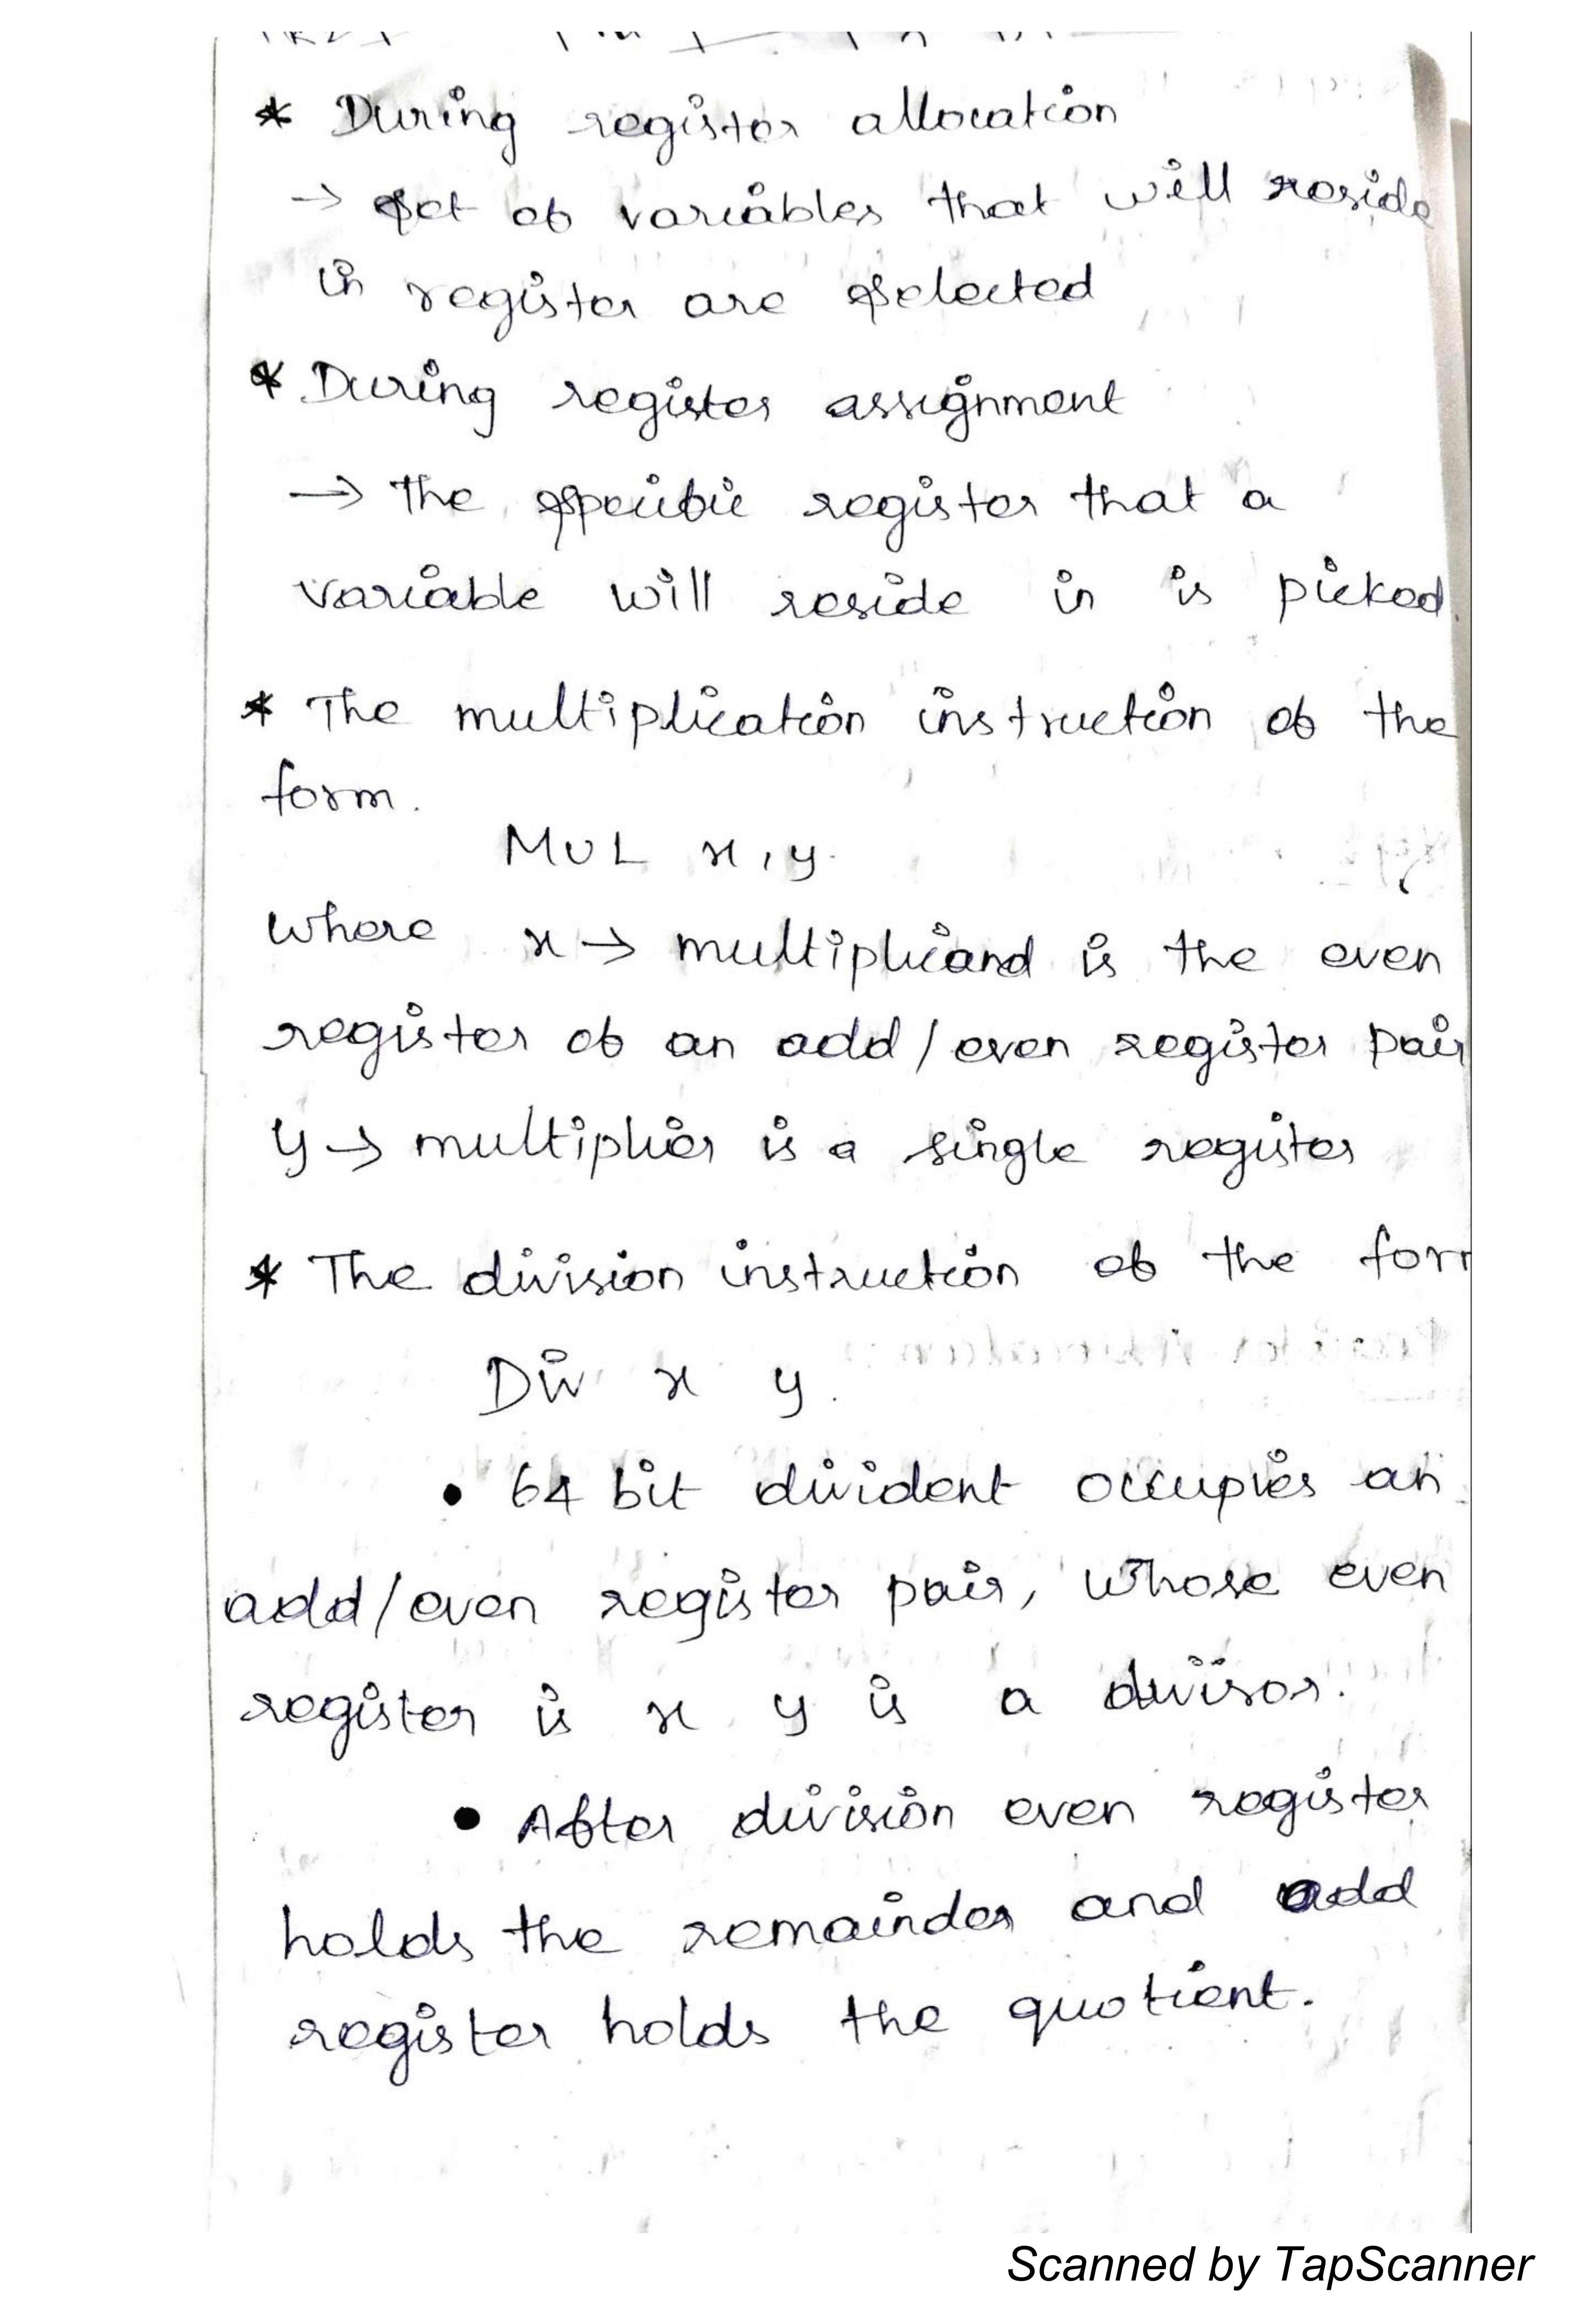 * During register allocation
→ set of variables that will reside
in register are selected
* During register assignment
→ the specific register that a
variable will reside in is picked.
* The multiplication instruction of the
form.
MUL x, y.
Where x → multiplicand is the even
register of an add/even register pair
y → multiplier is a single register
* The division instruction of the form
Div x y.
• 64 bit divident occupies an
add/even register pair, whose even
register is x y is a divisor.
• After division even register
holds the remainder and odd
register holds the quotient.
Scanned by TapScanner